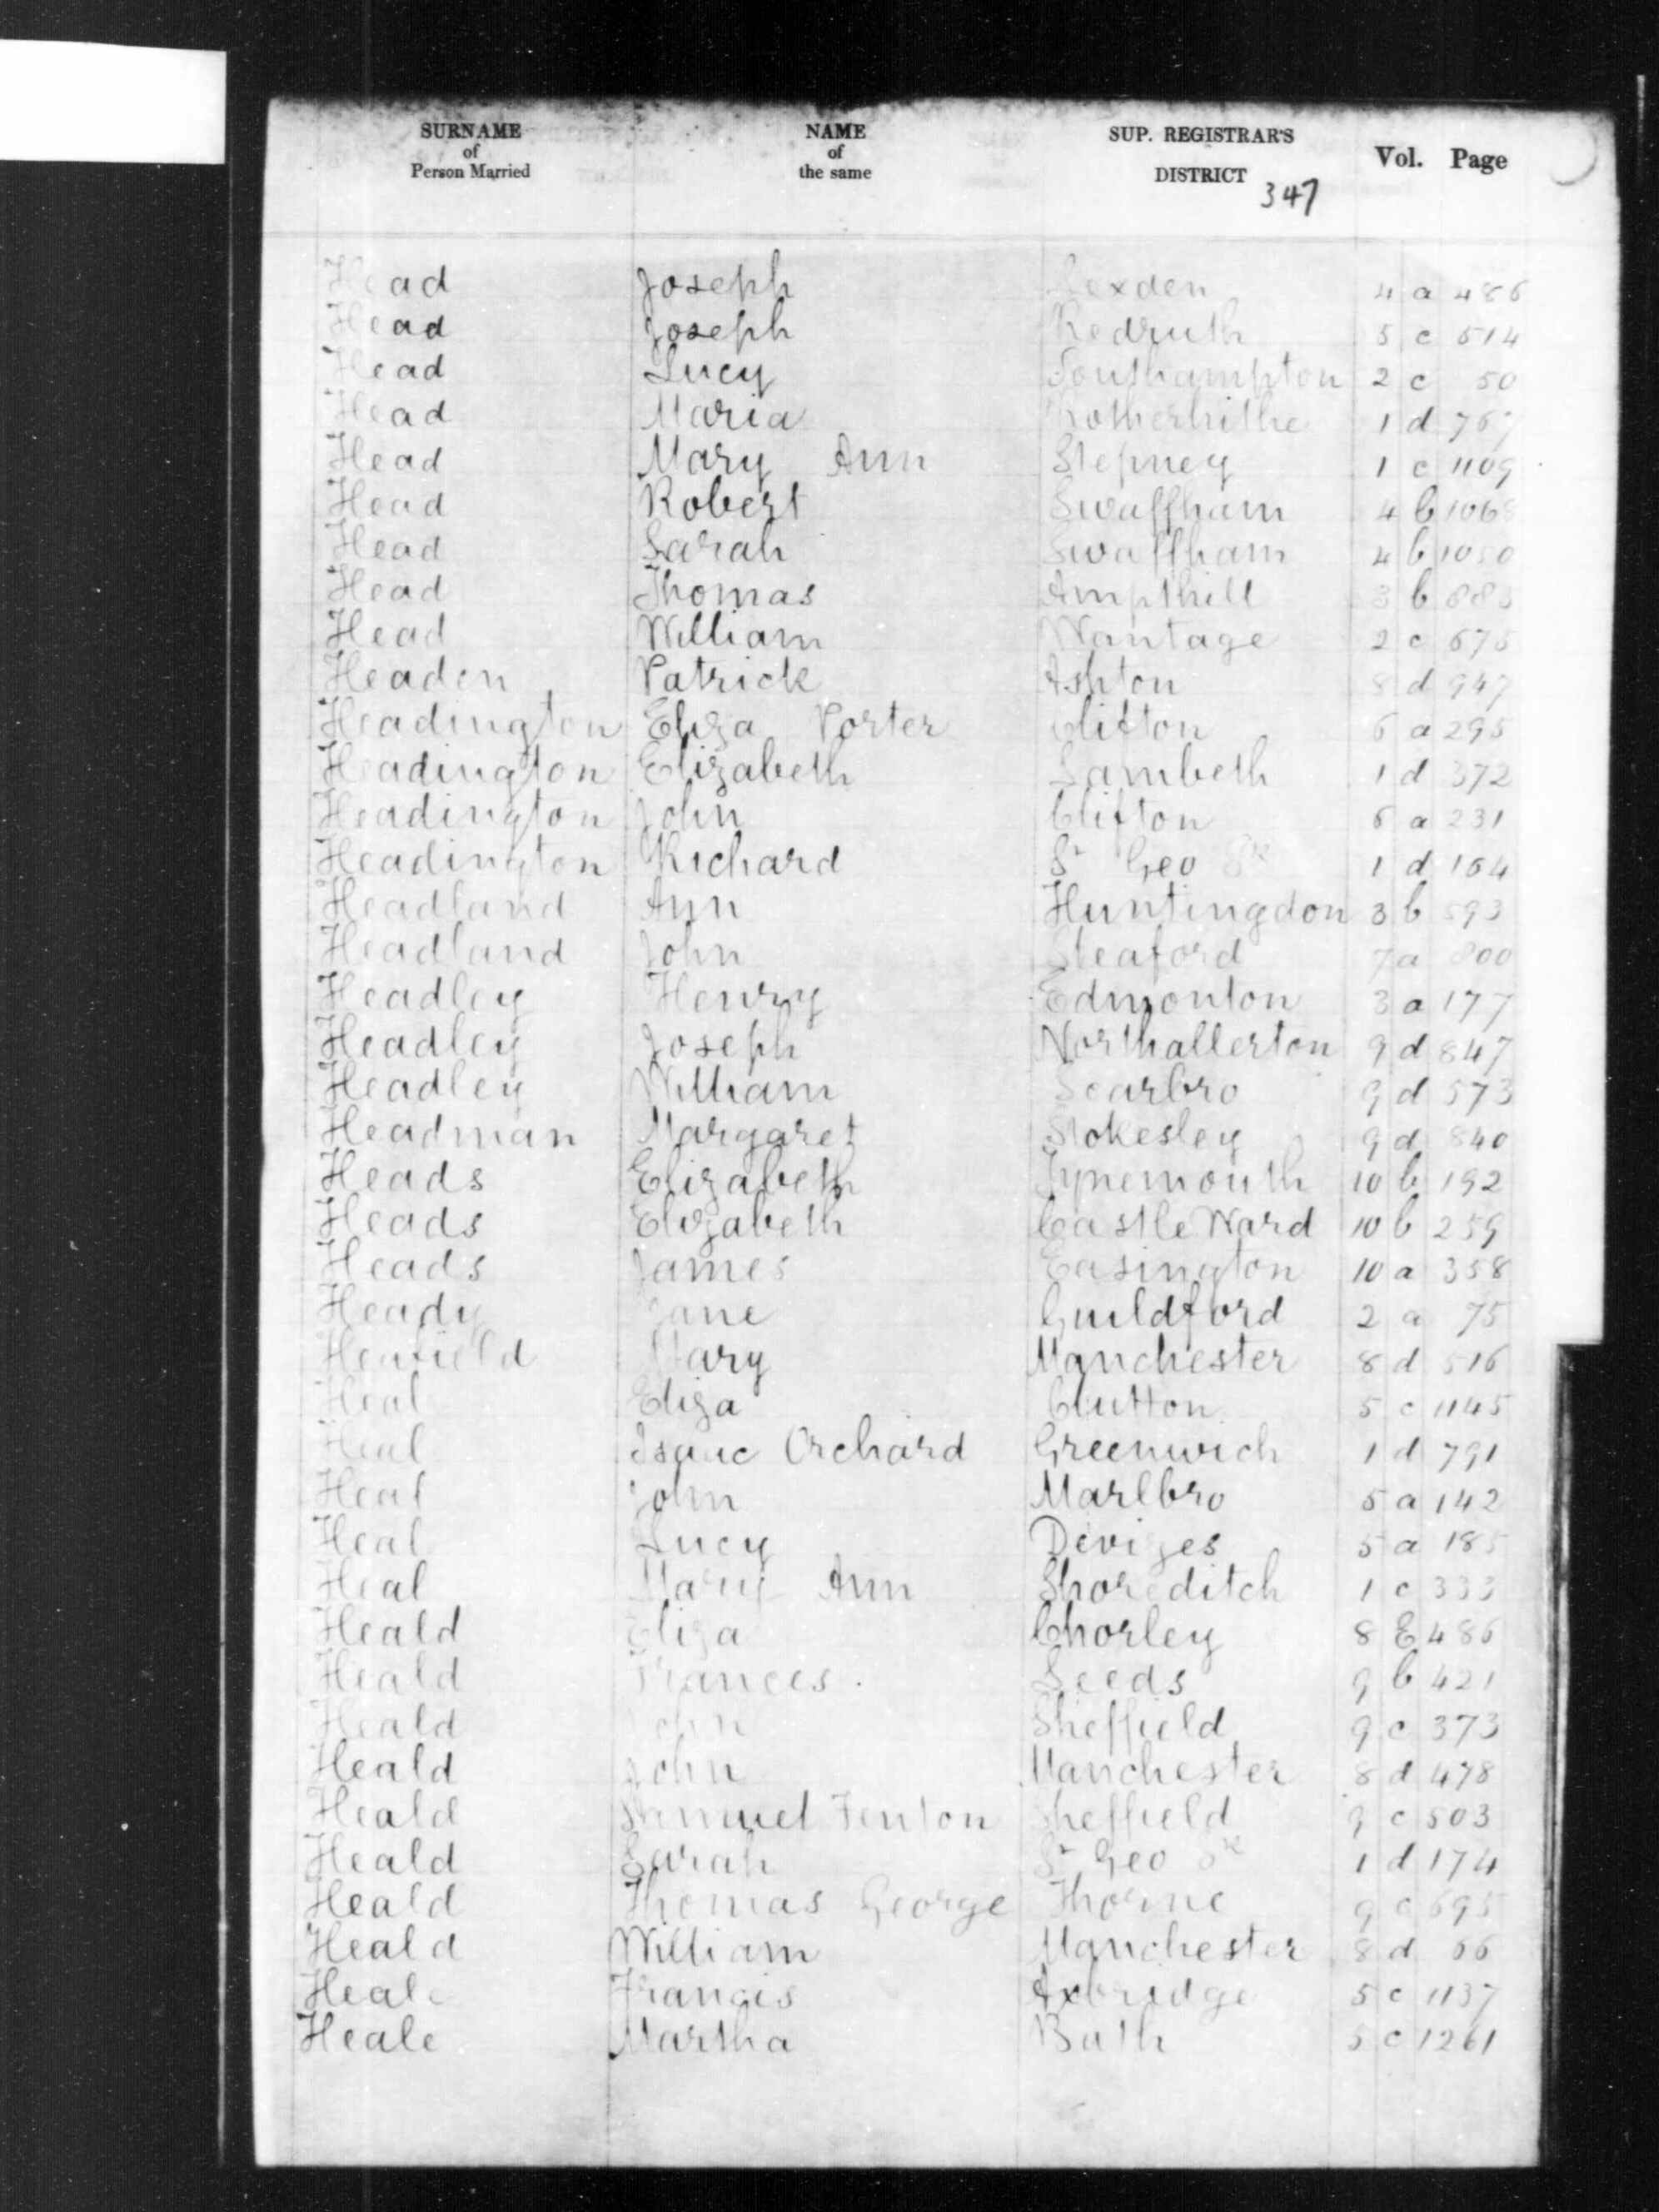 SURNAME of Person Married NAME of the same SUP. REGISTRAR'S DISTRICT Vol. Page
347
Head Joseph Lexden 4 a 486
Head Joseph Redruth 5 c 514
Head Lucy Southampton 2 c 50
Head Maria Rotherhithe 1 d 767
Head Mary Ann Stepney 1 c 1109
Head Robert Swaffham 4 b 1068
Head Sarah Swaffham 4 b 1050
Head Thomas Ampthill 3 b
Head William Wantage 2 c 675
Headen Patrick Ashton 8 d 947
Headington Eliza Porter Clifton 6 a 295
Headington Elizabeth Lambeth 1 d 372
Headington John Clifton 6 a 231
Headington Richard St Geo Sk 1 d 164
Headland Ann Huntingdon 3 b 593
Headland John Sleaford 7 a 800
Headley Henry Edmonton 3 a 177
Headley Joseph Northallerton 9 d 847
Headley William Scarbro 9 d 573
Headman Margaret Stokesley 9 d 840
Heads Elizabeth Tynemouth 10 b 192
Heads Elizabeth Castle Ward 10 b 259
Heads James Easington 10 a 358
Heady Jane Guildford 2 a 75
Heafield Mary Manchester 8 d 516
Heal Eliza Clutton 5 c 1145
Heal Isaac Orchard Greenwich 1 d 791
Heal John Marlbro 5 a 142
Heal Lucy Devizes 5 a 185
Heal Mary Ann Shoreditch 1 c 333
Heald Eliza Chorley 8 E 486
Heald Frances Leeds 9 b 421
Heald John Sheffield 9 c 373
Heald John Manchester 8 d 478
Heald Samuel Fenton Sheffield 9 c 503
Heald Sarah St Geo Sk 1 d 174
Heald Thomas George Thorne 9 c 695
Heald William Manchester 8 d 66
Heale Francis Axbridge 5 c 1137
Heale Martha Bath 5 c 1261